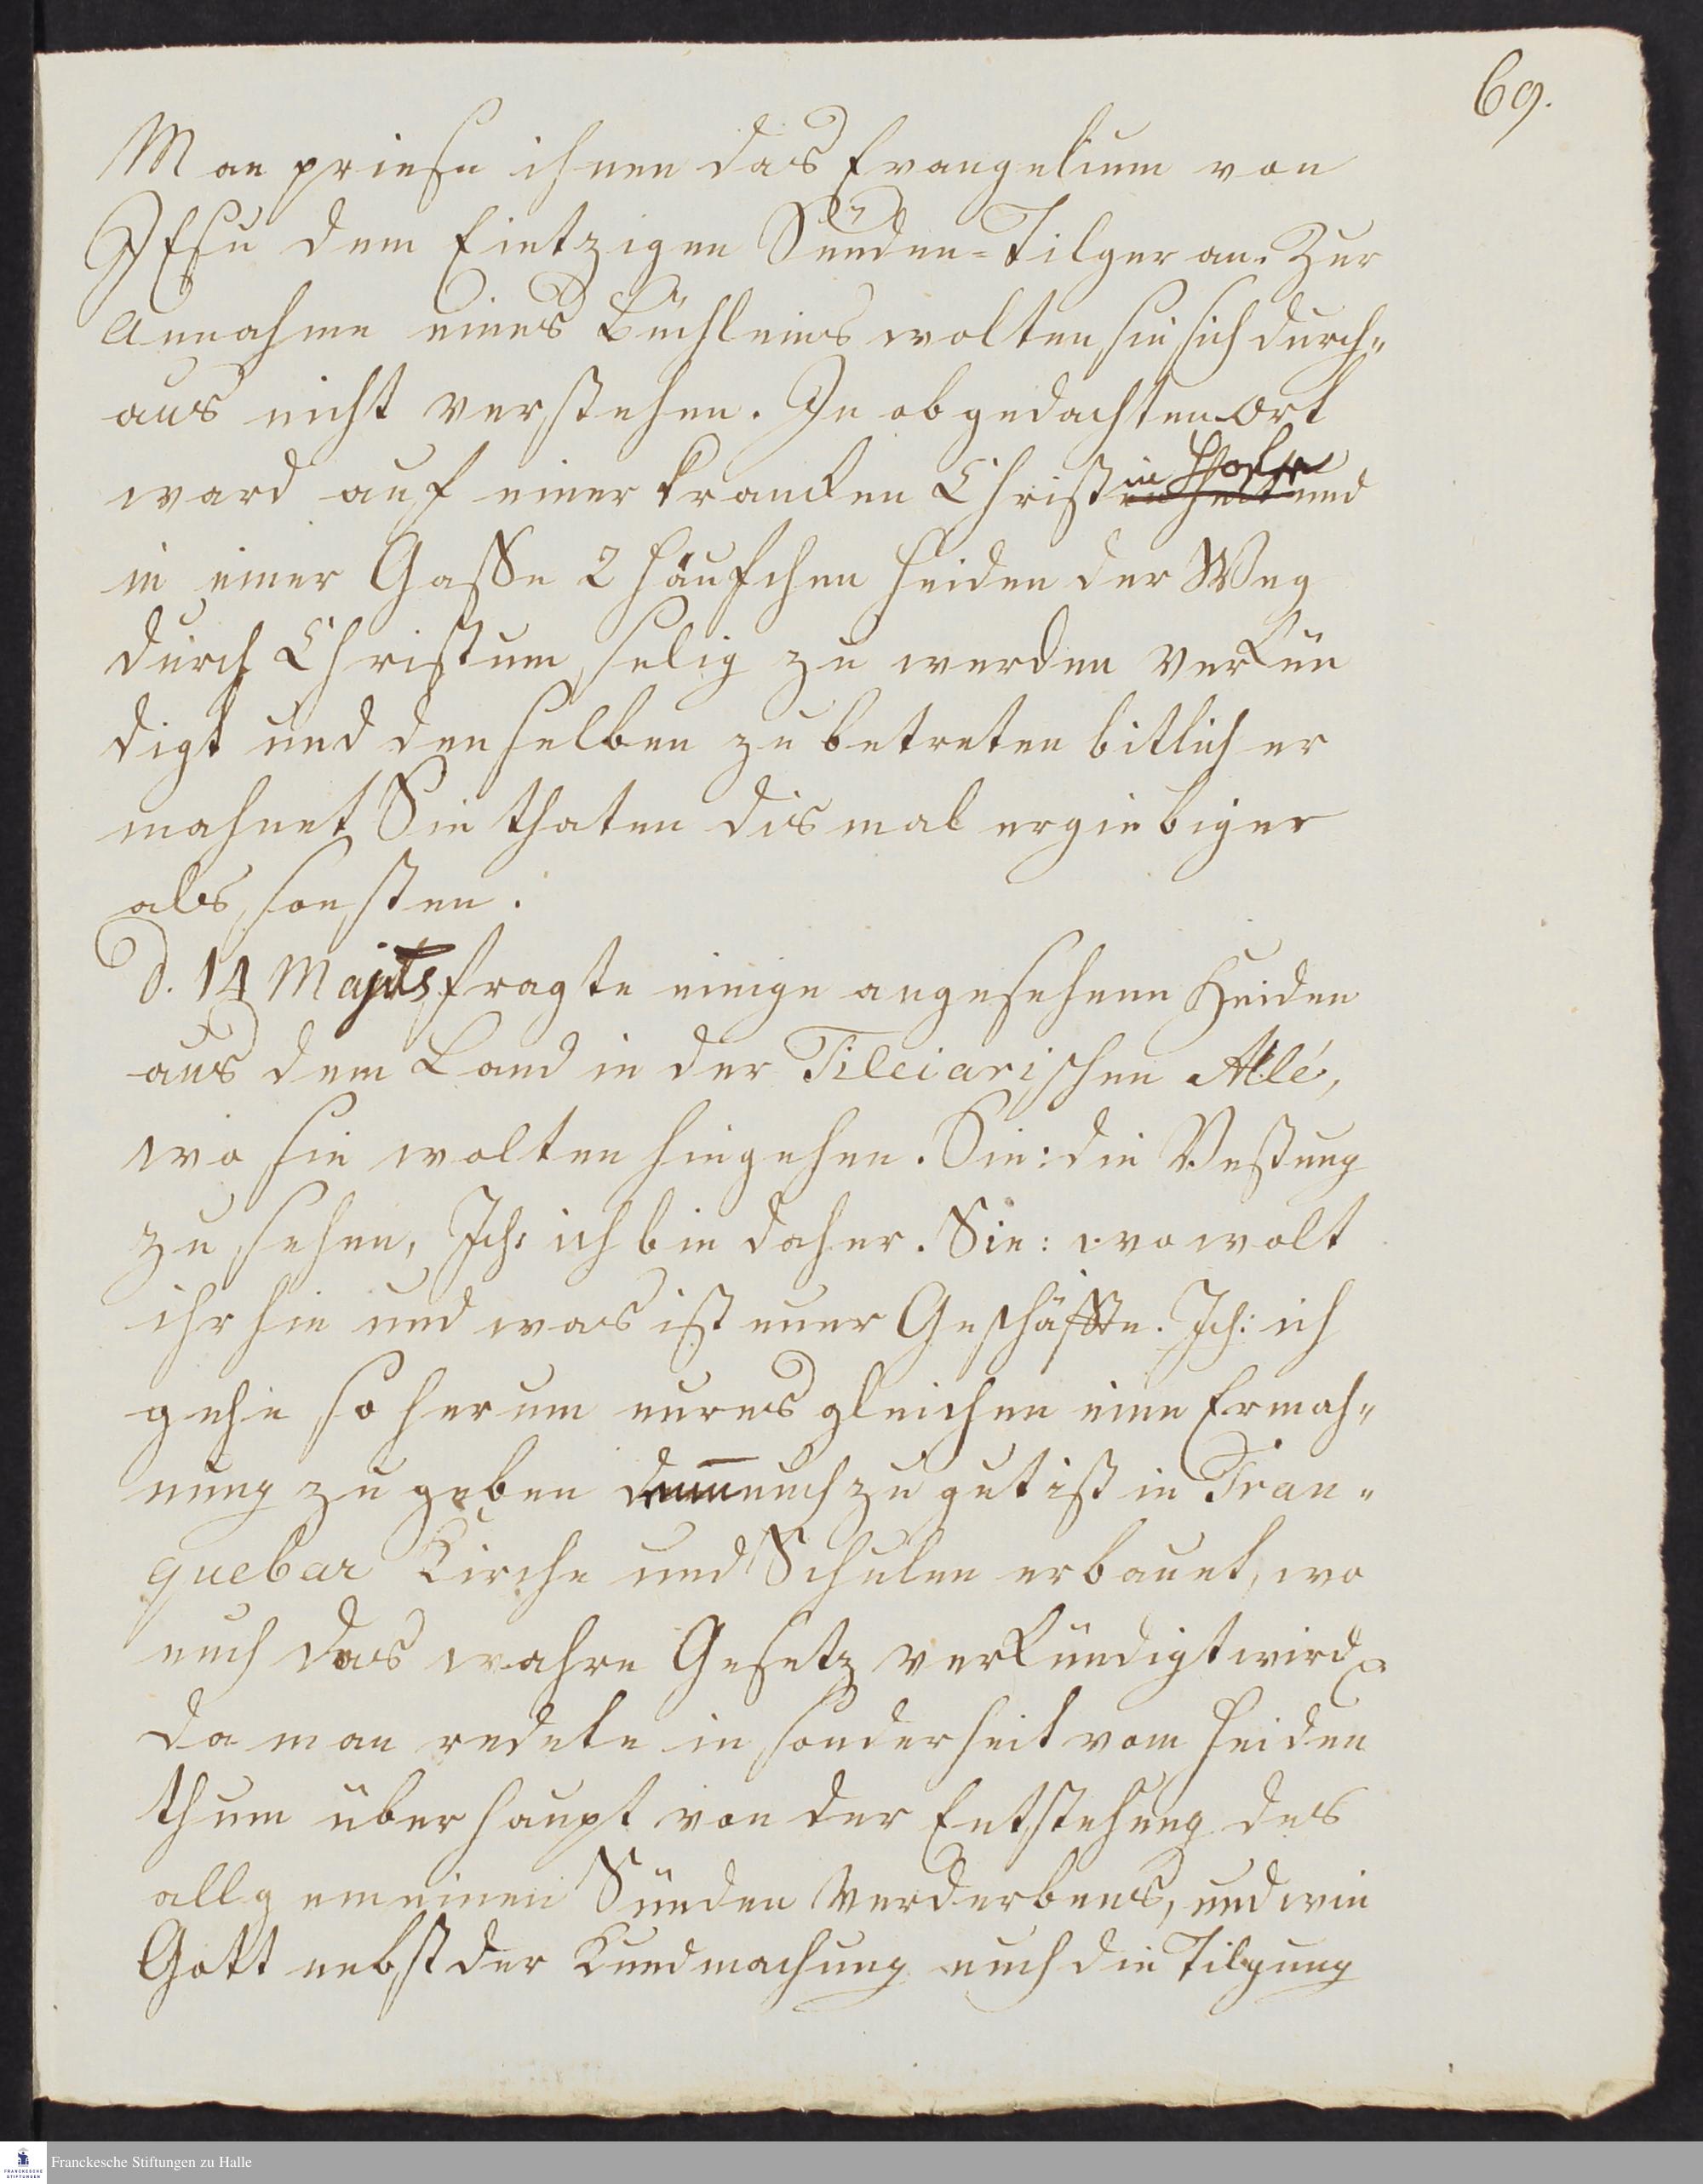 69.
Man priese ihnen das Evangelium von
JEsu dem Eintzigen Sünden-Tilger an. Zur
Annahme eines Büchleins wolten sie sich durch„
aus nicht verstehen. In obgedachten Ort
ward auf einer krancken Christin Hofe und
in einer Gasse 2 Häufchen Heiden der Weg
durch Christum selig zu werden verkün
digt und denselben zu betreten bittlich er
mahnet Sie thaten dis mal ergiebiger
als sonsten.
d. 14 Maji fragte einige angesehene Heiden
aus dem Land in der Tileiarischen Allé,
wo sie wolten hingehen. Sie: die Vestung
zu sehen, Ich: ich bin daher. Sie: wo wolt
ihr hin und was ist euer Geschäffte. Ich: ich
gehe so herum eures gleichen eine Ermah„
nung zu geben denn euch zu gut ist in Tran„
quebar Kirche und Schulen erbauet, wo
euch das wahre Gesetz verkündigt wird
da man redete in sonderheit vom Heiden
thum überhaupt von der Entstehung des
allgemeinen Sünden Verderbens, und wie
Gott nebst der Kundmachung auch die Tilgung
Franckesche Stiftungen zu Halle
FRANCKESCHE
STIFTUNGEN